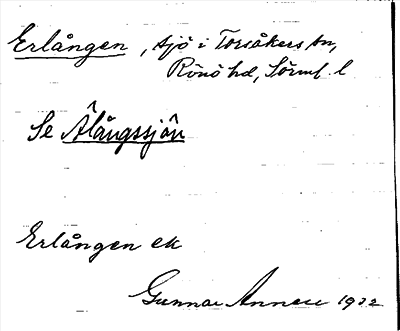 Erlången, sjö i Torsåkers sn,
Rönö hd, Sörml. l
Se Älångssjön
Erlången ek
Gunnar Annell 1922